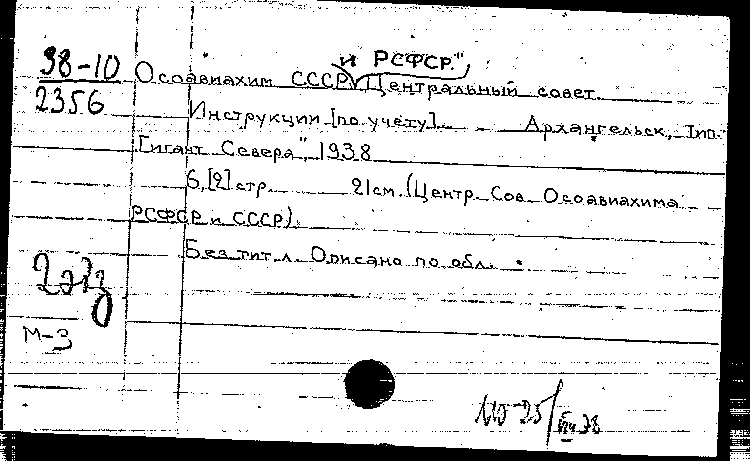 38-10
2356
и РСФСР.",
Осоавиахим СССР, Центральный совет.
Инструкции [по учету]. Архангельск, Тип.
"Гигант Севера", 1938
6,[2] стр. 21см. (Центр. Сов. Осоавиахима
РСФСР и СССР).
Без тит. л. Описано по обл.
М-3